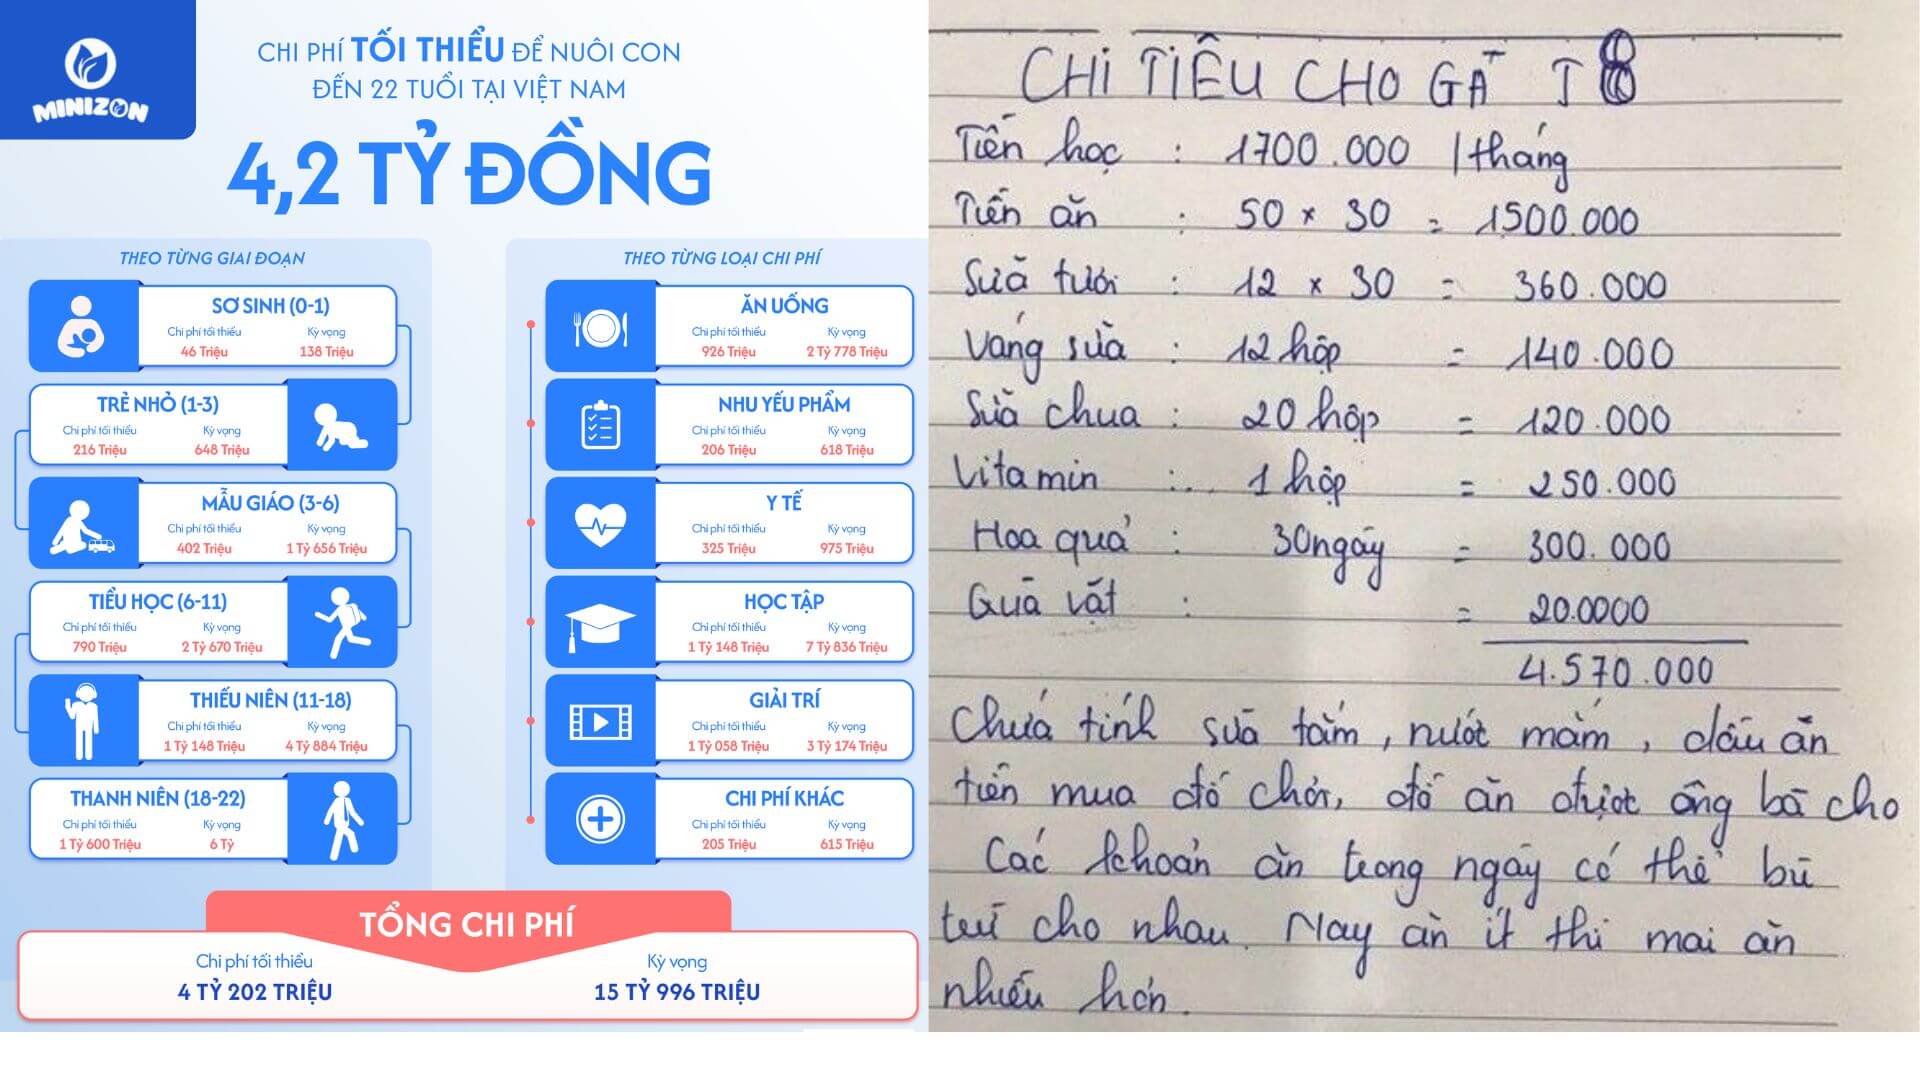 MINIZON
CHI PHÍ TỐI THIỂU ĐỂ NUÔI CON
ĐẾN 22 TUỔI TẠI VIỆT NAM
4,2 TỶ ĐỒNG
THEO TỪNG GIAI ĐOẠN
SƠ SINH (0-1)
Chi phí tối thiểu Kỳ vọng
46 Triệu 138 Triệu
TRẺ NHỎ (1-3)
Chi phí tối thiểu Kỳ vọng
216 Triệu 648 Triệu
MẪU GIÁO (3-6)
Chi phí tối thiểu Kỳ vọng
402 Triệu 1 Tỷ 656 Triệu
TIỂU HỌC (6-11)
Chi phí tối thiểu Kỳ vọng
790 Triệu 2 Tỷ 670 Triệu
THIẾU NIÊN (11-18)
Chi phí tối thiểu Kỳ vọng
1 Tỷ 148 Triệu 4 Tỷ 884 Triệu
THANH NIÊN (18-22)
Chi phí tối thiểu Kỳ vọng
1 Tỷ 600 Triệu 6 Tỷ
THEO TỪNG LOẠI CHI PHÍ
ĂN UỐNG
Chi phí tối thiểu Kỳ vọng
926 Triệu 2 Tỷ 778 Triệu
NHU YẾU PHẨM
Chi phí tối thiểu Kỳ vọng
206 Triệu 618 Triệu
Y TẾ
Chi phí tối thiểu Kỳ vọng
325 Triệu 975 Triệu
HỌC TẬP
Chi phí tối thiểu Kỳ vọng
1 Tỷ 148 Triệu 7 Tỷ 836 Triệu
GIẢI TRÍ
Chi phí tối thiểu Kỳ vọng
1 Tỷ 058 Triệu 3 Tỷ 174 Triệu
CHI PHÍ KHÁC
Chi phí tối thiểu Kỳ vọng
205 Triệu 615 Triệu
TỔNG CHI PHÍ
Chi phí tối thiểu Kỳ vọng
4 TỶ 202 TRIỆU 15 TỶ 996 TRIỆU
CHI TIÊU CHO GÀ T8
Tiền học : 1700.000 / tháng
Tiền ăn : 50 × 30 = 1500.000
Sữa tươi : 12 × 30 = 360.000
Váng sữa : 12 hộp = 140.000
Sữa chua : 20 hộp = 120.000
Vitamin : 1 hộp = 250.000
Hoa quả : 30 ngày = 300.000
Quà vặt : = 20.0000
4.570.000
Chưa tính sữa tắm, nước mắm, dầu ăn
tiền mua đồ chơi, đồ ăn được ông bà cho
Các khoản ăn trong ngày có thể bù
trừ cho nhau. Nay ăn ít thì mai ăn
nhiều hơn.